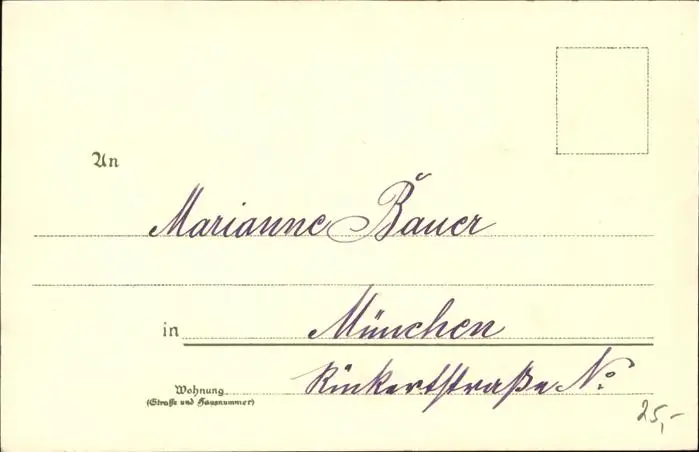 An
Marianne Bauer
in München
Wohnung Rückertstraße No
(Straße und Hausnummer)
25,-